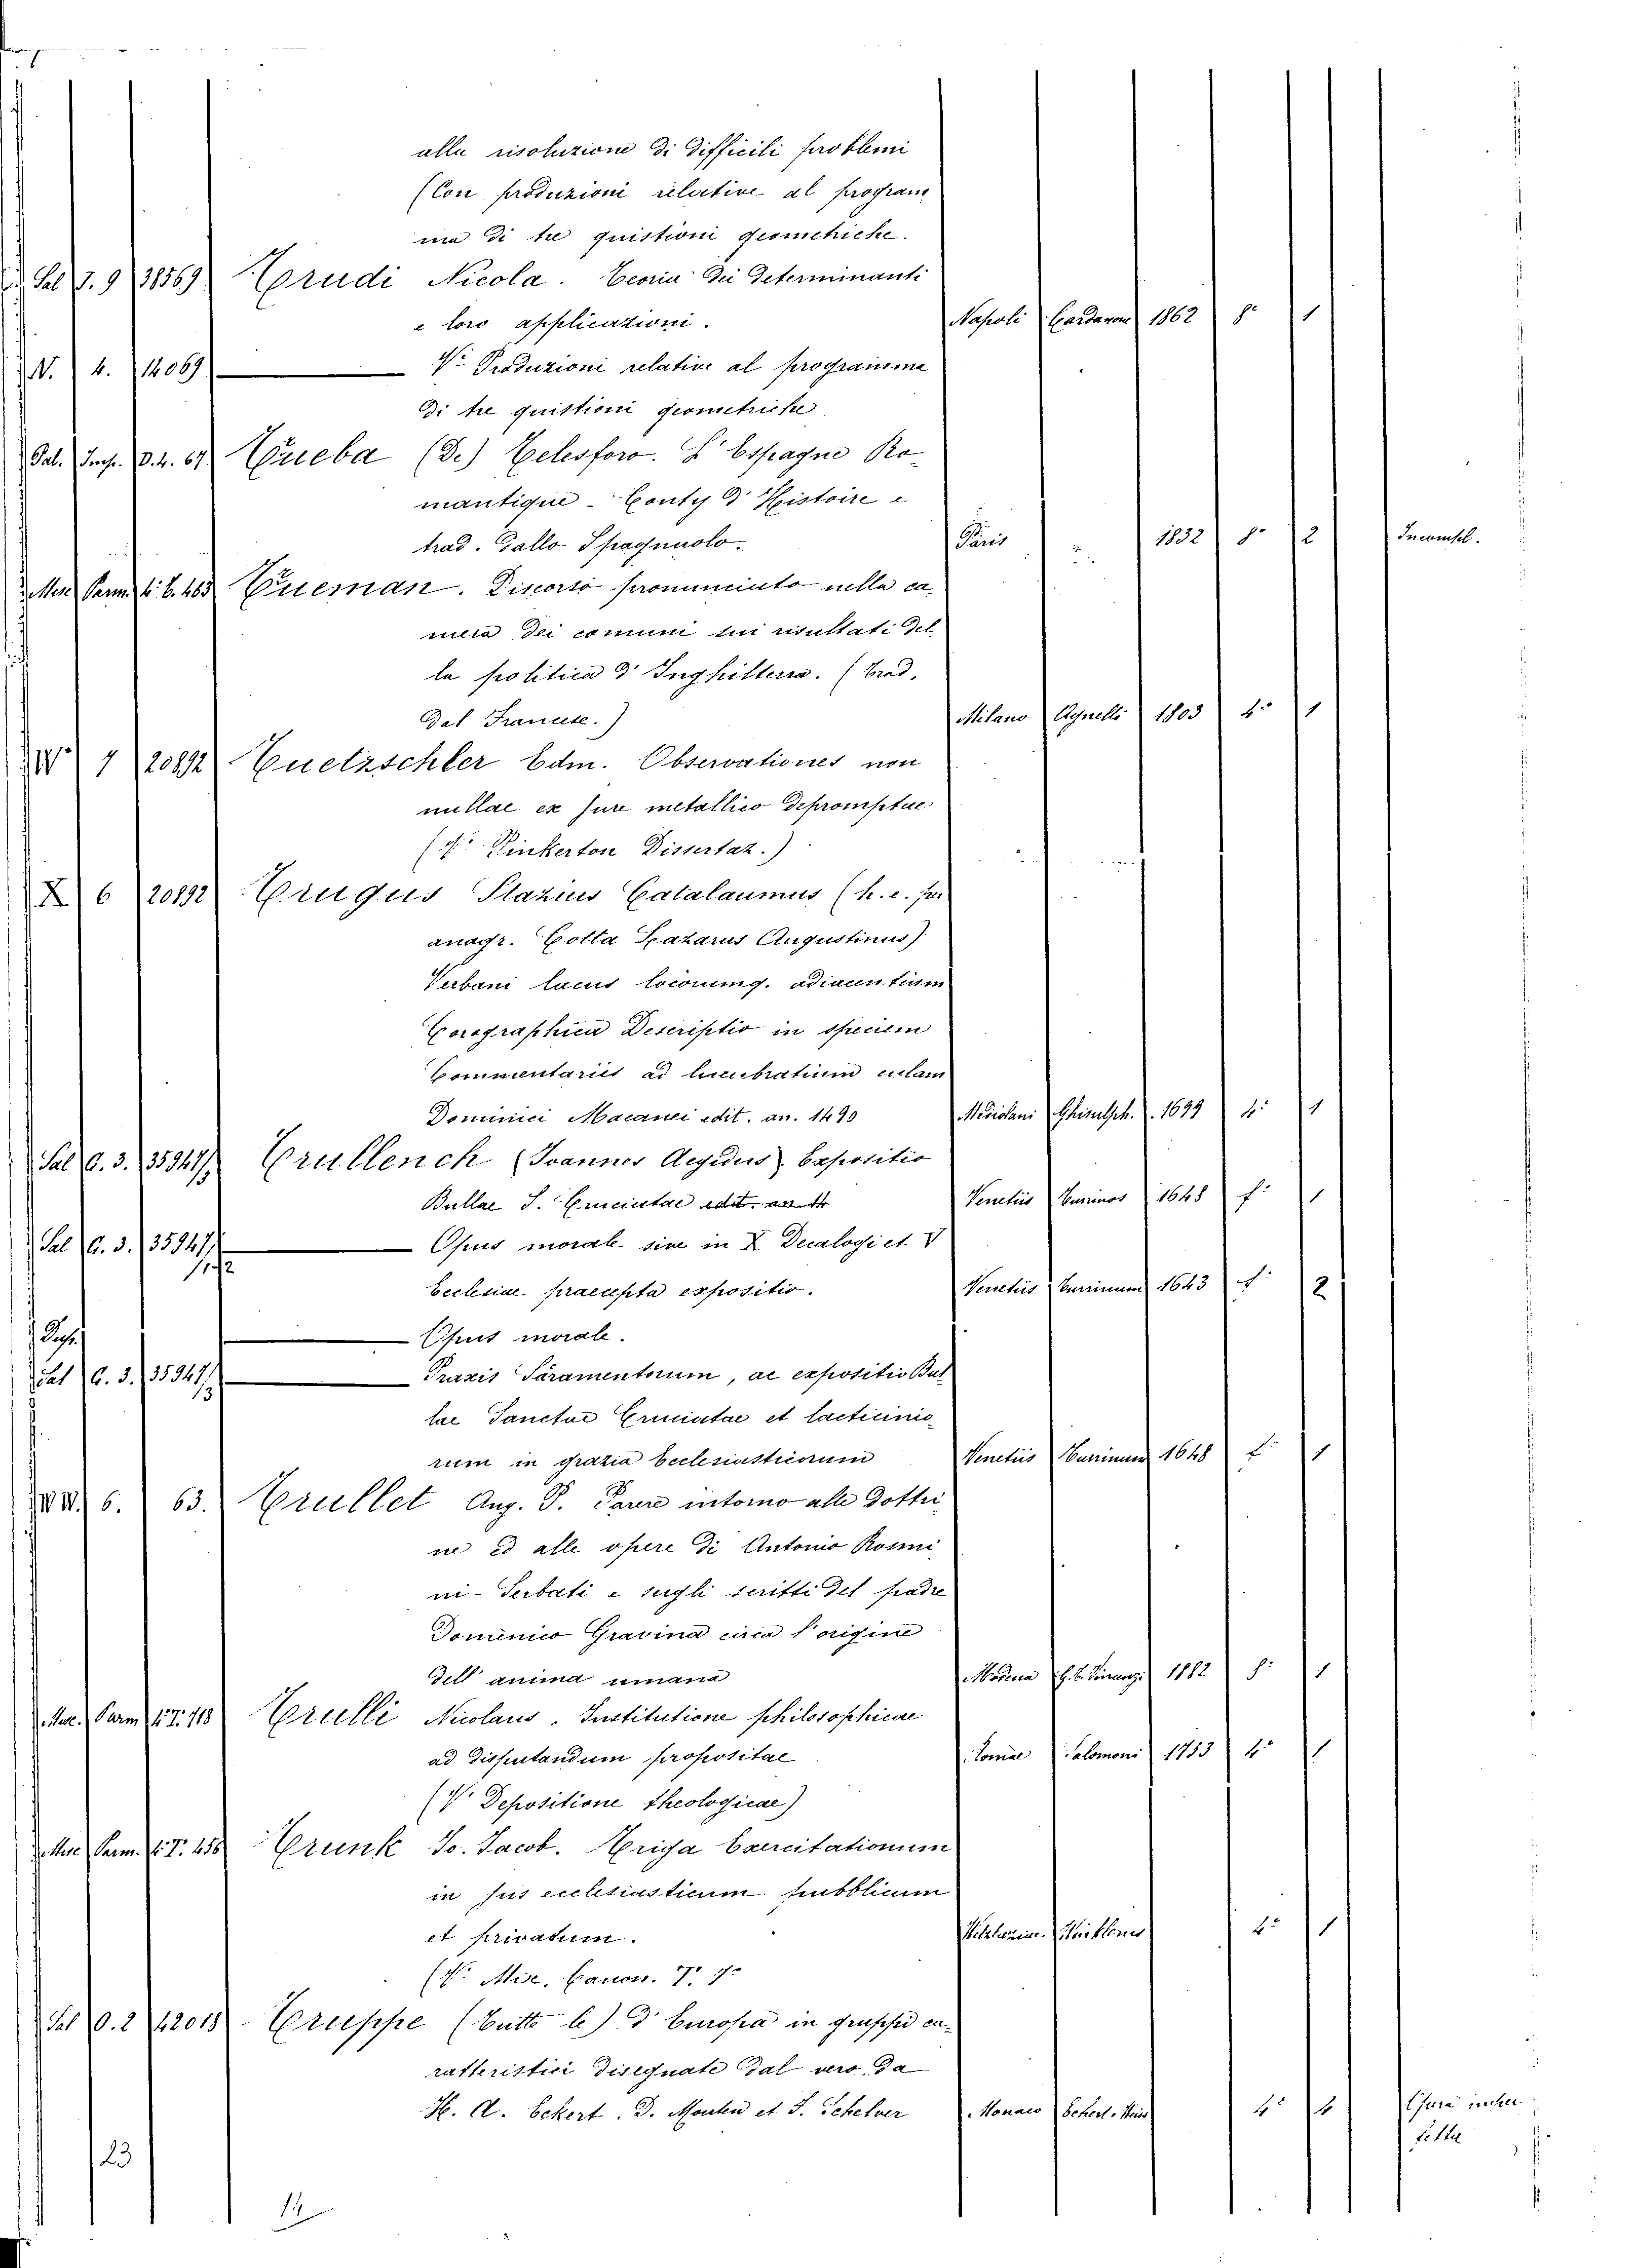 alla risoluzione di difficili problemi
(Con produzioni relative al program
ma di tre quistioni geometriche.
Sal J. 9 38569 Trudi Nicola. Teoria dei determinanti
e loro applicazioni. Napoli 1862 8° 1
N. 4. 14069 V° Produzioni relative al programma
di tre quistioni geometriche
Pal. Imp. D. 4. 67 Trueba (De) Telesforo. L'Espagne Ro
mantique - Conty d'Histoire e
trad. dallo Spagnuolo. Paris 1832 8° 2 Incompl.
Misc Parm. 4° 6. 463 Trueman. Discorso pronunciato nella ca
mera dei comuni sui risultati del
la politica d'Inghilterra. (Trad.
dal Francese.) Milano Agnelli 1803 4° 1
W 7 20892 Truetzschler Edm. Observationes non
nullae ex jure metallico depromptae
(V° Pinkerton Dissertaz.)
X 6 20892 Trugus Plazius Catalaunus (h. e. per
anagr. Cotta Lazarus Augustinus)
Verbani lacus locorumq. adiacentium
Corographica Descriptio in speciem
Commentarii ad lucubratiunculam
Dominici Macanei edit. an. 1490 Mediolani Ghisulph. 1699 4° 1
Sal C. 3. 35947/2 Trullench (Joannes Aegidius) Expositio
Bullae S. Cruciatae Venetiis 1648 f° 1
Sal C. 3. 35947/1.2 Opus morale sive in X Decalogi et V
Ecclesiae praecepta expositio. Venetiis 1643 f° 2
Opus morale.
Sal C. 3. 35947/3 Praxis Saramentorum, ac expositio Bul
lae Sanctae Cruciatae et lacticinio
rum in grazia ecclesiasticorum Venetiis 1648 f° 1
W W. 6. 63. Trullet Ang. P. Parere intorno alle dottri
ne ed alle opere di Antonio Rosmi
ni-Serbati e sugli scritti del padre
Domenico Gravina circa l'origine
dell'anima umana Modena 1882 8° 1
Misc. Parm 4° T. 118 Trulli Nicolaus. Institutione philosophicae
ad disputandum propositae Romae Salomoni 1753 4° 1
(V° Depositione theologicae)
Misc Parm. 4° T. 456 Trunk Jo. Jacob. Triga Exercitationum
in jus ecclesiasticum pubblicum
et privatum. Wetzlariae Winklerus 4° 1
(V° Misc. Canon. T. 7°
Sal O. 2 42018 Truppe (Tutte le) d'Europa in gruppi ca
ratteristici disegnate dal vero da
H. A. Eckert. D. Monten et S. Schelver Monaco 4° 1
23
14